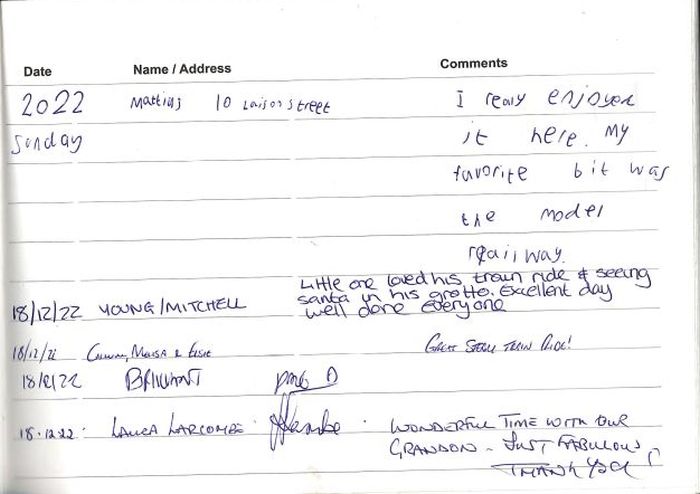 Date Name / Address Comments
2022 Mattius 10 street I realy enjoyed
Sunday it here. My
favorite bit was
the model
railway.
18/12/22 YOUNG/MITCHELL Little one loved his train ride & seeing
santa in his grotto. Excellent day
well done everyone
18/12/22 & Elsie Great Steam Train Ride!
18/12/22 BRILLIANT
18.12.22. LAURA LARCOMBE. WONDERFUL TIME WITH OUR
GRANDSON - JUST FABULOUS
THANK YOU!